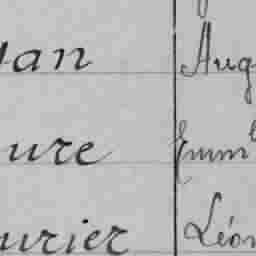 an Aug
ure Emm^l
urier Léon